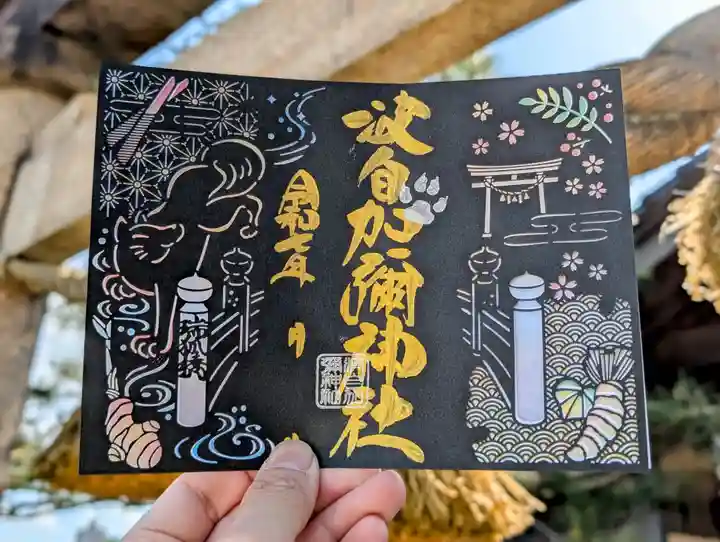 波自加彌神社
波自加
彌神社
令和七年 月